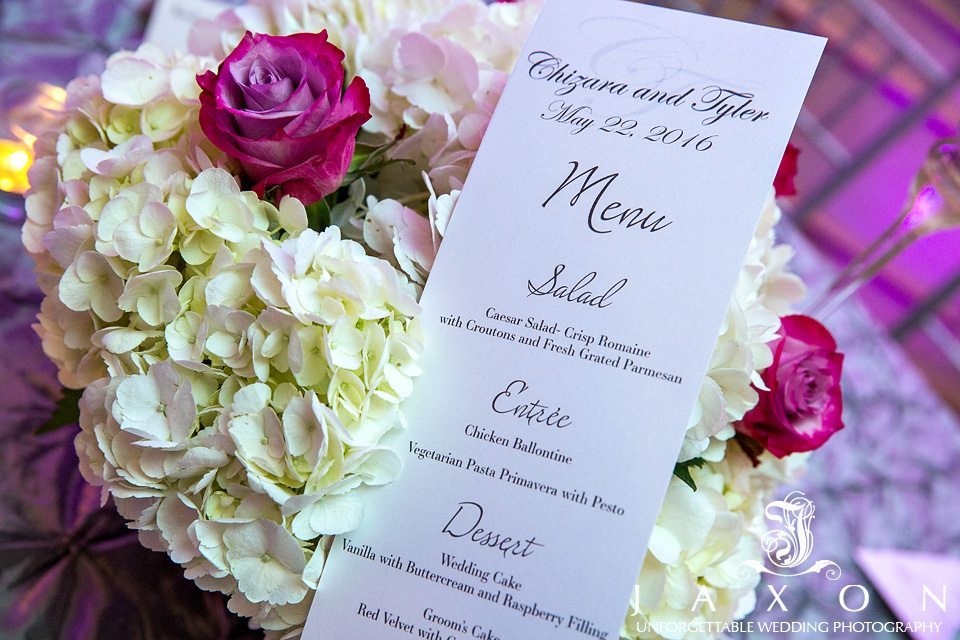 Chizara and Tyler
May 22, 2016
Menu
Salad
Caesar Salad- Crisp Romaine
with Croutons and Fresh Grated Parmesan
Entrée
Chicken Ballontine
Vegetarian Pasta Primavera with Pesto
Dessert
Wedding Cake
Vanilla with Buttercream and Raspberry Filling
Groom's Cake
Red Velvet with Cream
J
JAXON
UNFORGETTABLE WEDDING PHOTOGRAPHY